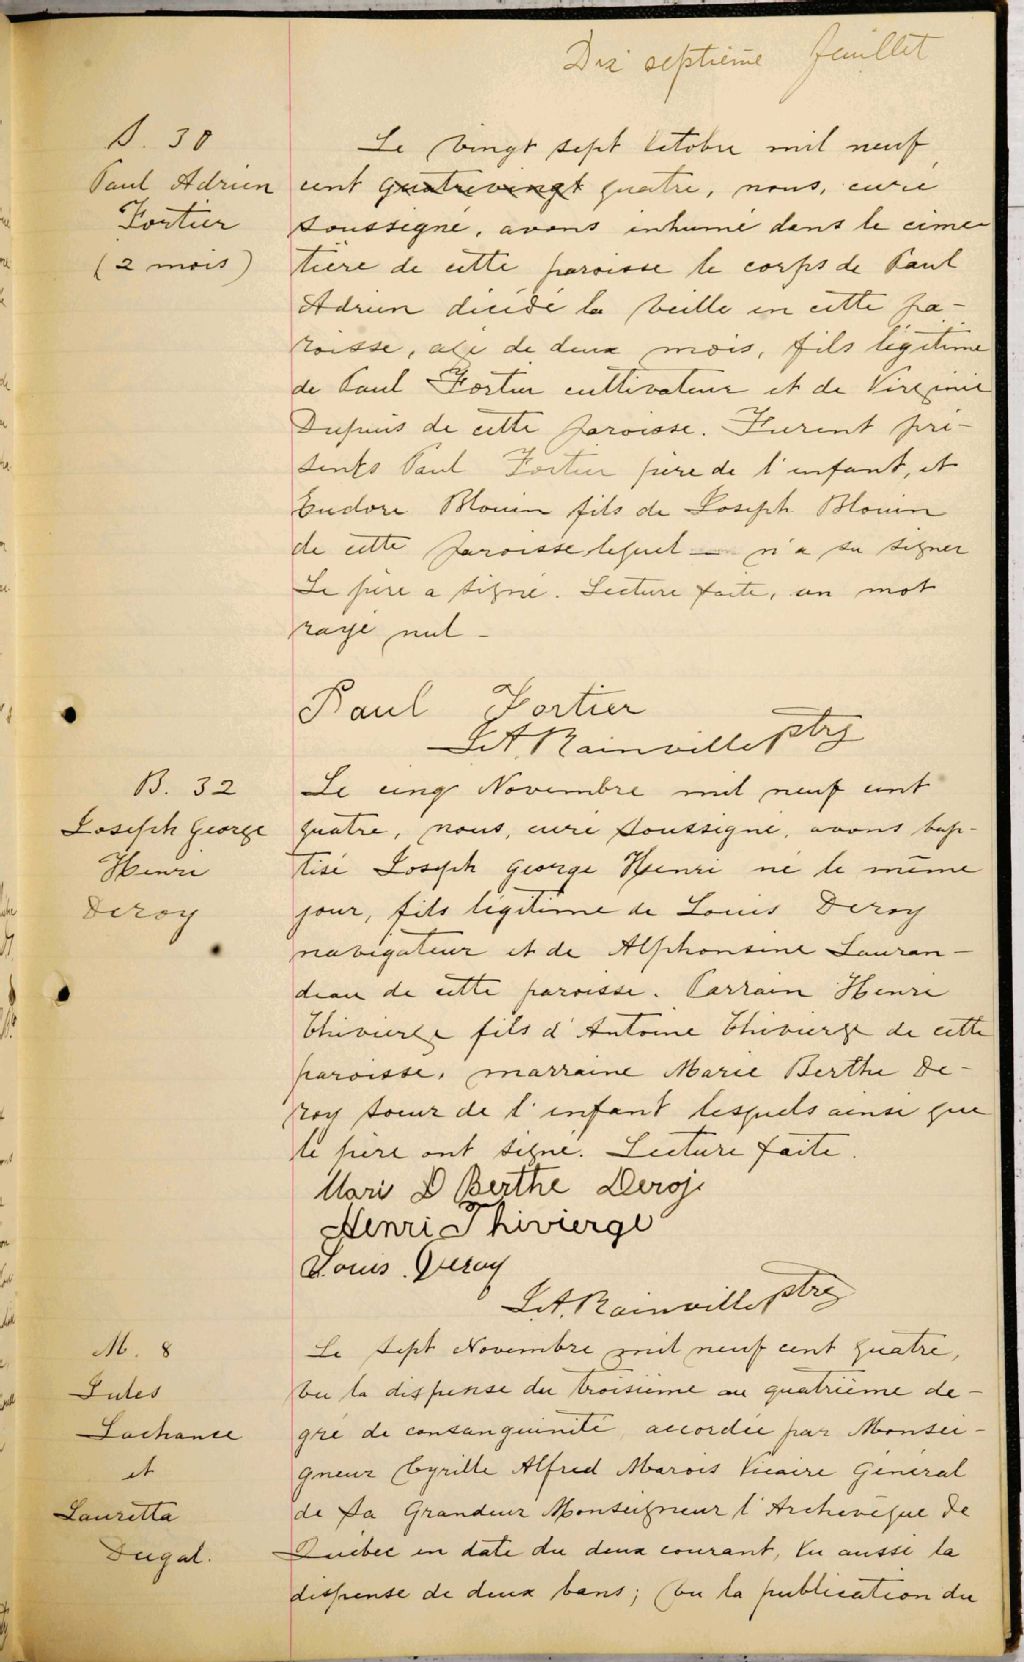 Dix septième feuillet
S. 30
Paul Adrien
Fortier
(2 mois)
Le vingt sept Octobre mil neuf
cent quatrevingt quatre, nous, curé
soussigné, avons inhumé dans le cime-
tière de cette paroisse le corps de Paul
Adrien décédé la veille en cette pa-
roisse, agé de deux mois, fils légitime
de Paul Fortier cultivateur et de Virginie
Dupuis de cette paroisse. Furent pré-
sents Paul Fortier père de l'enfant, et
Eudore Blouin fils de Joseph Blouin
de cette paroisse lequel — n'a su signer
Le père a signé. Lecture faite, un mot
rayé nul -
Paul Fortier
J.A. Rainville ptre
B. 32
Joseph George
Henri
Deroy
Le cinq Novembre mil neuf cent
quatre, nous, curé soussigné, avons bap-
tisé Joseph George Henri né le même
jour, fils légitime de Louis Deroy
navigateur et de Alphonsine Lauran-
deau de cette paroisse. Parrain Henri
Thivierge fils d'Antoine Thivierge de cette
paroisse, marraine Marie Berthe De-
roy soeur de l'enfant lesquels ainsi que
le père ont signé. Lecture faite.
Mari D Berthe Deroy
Henri Thivierge
Louis Deroy
J.A. Rainville ptre
M. 8
Jules
Lachance
et
Lauretta
Dugal.
Le sept Novembre mil neuf cent quatre,
vu la dispense du troisième au quatrième de-
gré de consanguinité accordée par Monsei-
gneur Cyrille Alfred Marois Vicaire Général
de Sa Grandeur Monseigneur l'Archevêque de
Québec en date du deux courant, vu aussi la
dispense de deux bans; vu la publication du